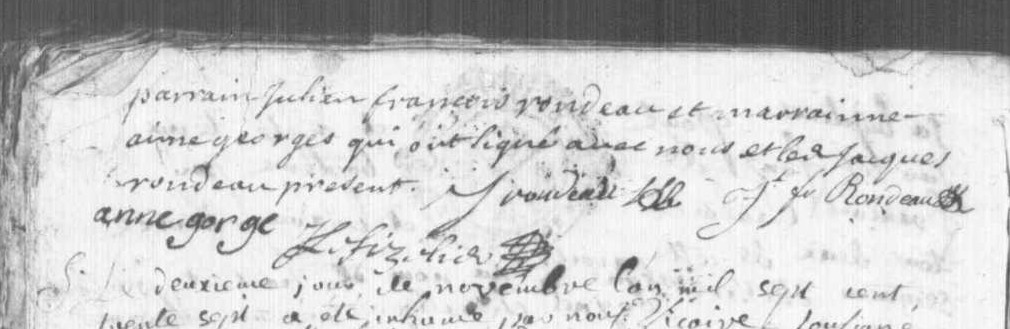 parrain Julien francois rondeau et marrainne
anne georges qui ont signé avec nous et led jacques
rondeau present. J rondeau J. fr Rondeau
anne gorge
deuxieme jour de novembre l'an mil sept cent
trente sept a été inhumé par nous Vicaire soussigné